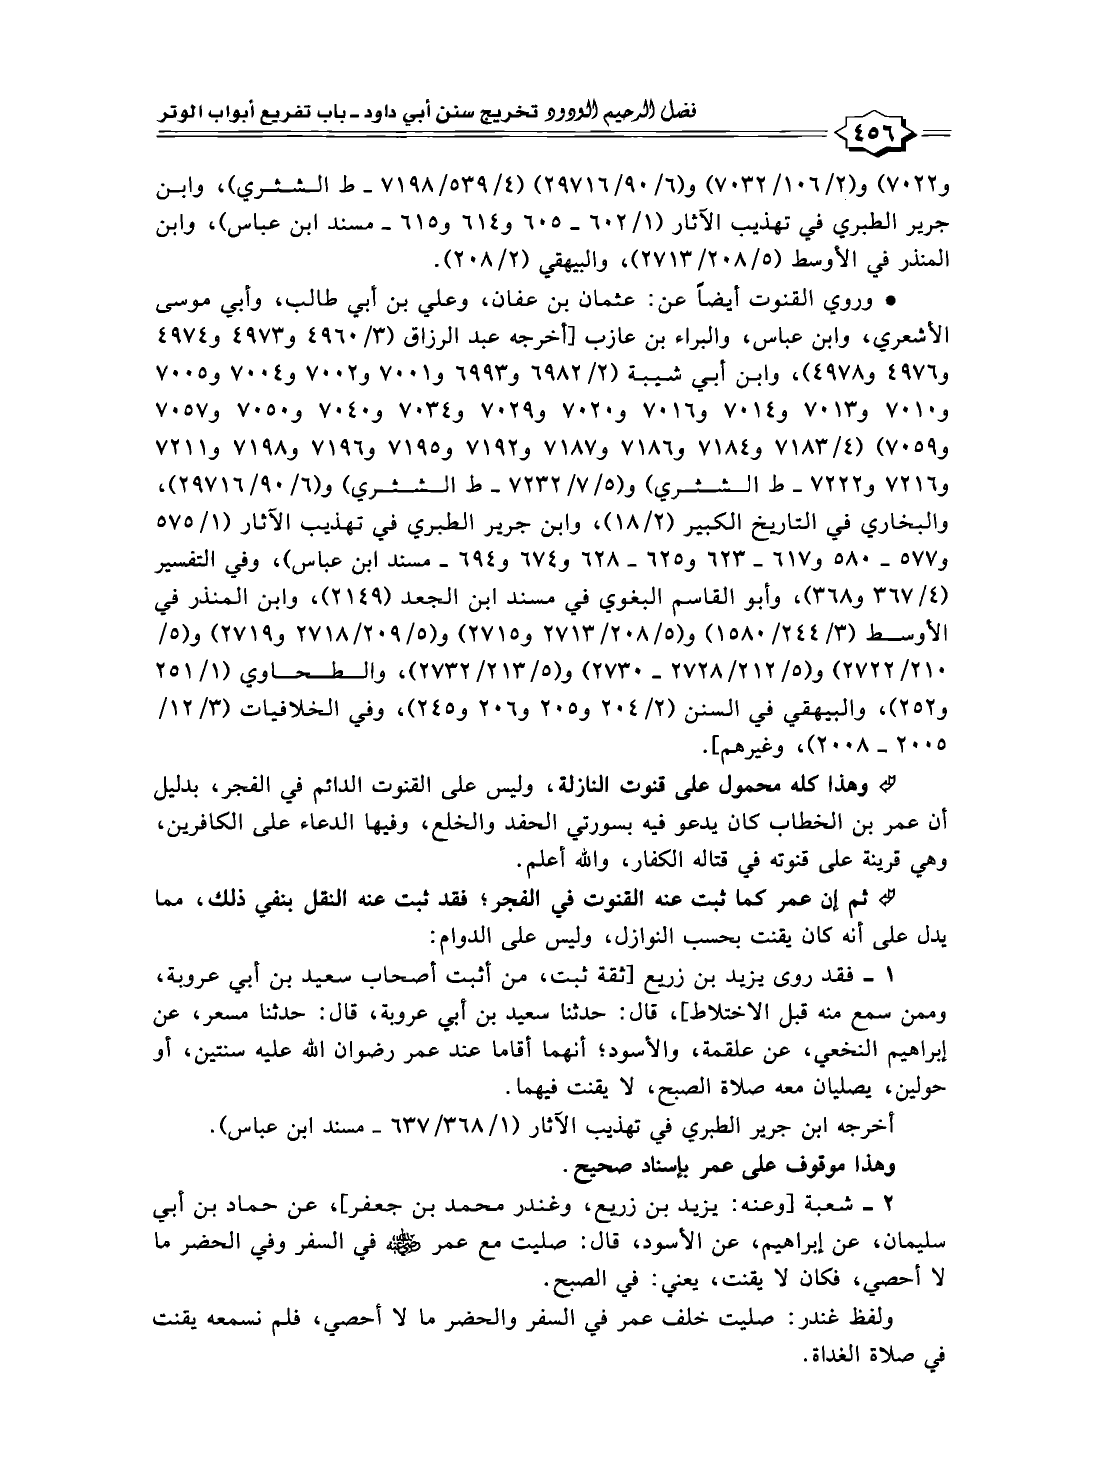 فضل الرحيم الودود تخريج سنن أبي داود ـ باب تفريع أبواب الوتر
٤٥٦
و٧٠٢٢) و(٢/ ١٠٦/ ٧٠٣٢) و(٦/ ٩٠/ ٢٩٧١٦) (٤/ ٥٣٩/ ٧١٩٨ ـ ط الشثري)، وابن
جرير الطبري في تهذيب الآثار (١/ ٦٠٢ ـ ٦٠٥ و٦١٤ و٦١٥ ـ مسند ابن عباس)، وابن
المنذر في الأوسط (٥/ ٢٠٨/ ٢٧١٣)، والبيهقي (٢/ ٢٠٨).
• وروي القنوت أيضاً عن: عثمان بن عفان، وعلي بن أبي طالب، وأبي موسى
الأشعري، وابن عباس، والبراء بن عازب [أخرجه عبد الرزاق (٣/ ٤٩٦٠ و٤٩٧٣ و٤٩٧٤
و٤٩٧٦ و٤٩٧٨)، وابن أبي شيبة (٢/ ٦٩٨٢ و٦٩٩٣ و٧٠٠١ و٧٠٠٢ و٧٠٠٤ و٧٠٠٥
و٧٠١٠ و٧٠١٣ و٧٠١٤ و٧٠١٦ و٧٠٢٠ و٧٠٢٩ و٧٠٣٤ و٧٠٤٠ و٧٠٥٠ و٧٠٥٧
و٧٠٥٩) (٤/ ٧١٨٣ و٧١٨٤ و٧١٨٦ و٧١٨٧ و٧١٩٢ و٧١٩٥ و٧١٩٦ و٧١٩٨ و٧٢١١
و٧٢١٦ و٧٢٢٢ ـ ط الشثري) و(٥/ ٧/ ٧٢٣٢ ـ ط الشثري) و(٦/ ٩٠/ ٢٩٧١٦)،
والبخاري في التاريخ الكبير (٢/ ١٨)، وابن جرير الطبري في تهذيب الآثار (١/ ٥٧٥
و٥٧٧ ـ ٥٨٠ و٦١٧ ـ ٦٢٣ و٦٢٥ ـ ٦٢٨ و٦٧٤ و٦٩٤ ـ مسند ابن عباس)، وفي التفسير
(٤/ ٣٦٧ و٣٦٨)، وأبو القاسم البغوي في مسند ابن الجعد (٢١٤٩)، وابن المنذر في
الأوسط (٣/ ٢٤٤/ ١٥٨٠) و(٥/ ٢٠٨/ ٢٧١٣ و٢٧١٥) و(٥/ ٢٠٩/ ٢٧١٨ و٢٧١٩) و(٥/
٢١٠/ ٢٧٢٢) و(٥/ ٢١٢/ ٢٧٢٨ ـ ٢٧٣٠) و(٥/ ٢١٣/ ٢٧٣٢)، والطحاوي (١/ ٢٥١
و٢٥٢)، والبيهقي في السنن (٢/ ٢٠٤ و٢٠٥ و٢٠٦ و٢٤٥)، وفي الخلافيات (٣/ ١٢/
٢٠٠٥ ـ ٢٠٠٨)، وغيرهم].
وهذا كله محمول على قنوت النازلة، وليس على القنوت الدائم في الفجر، بدليل
أن عمر بن الخطاب كان يدعو فيه بسورتي الحفد والخلع، وفيها الدعاء على الكافرين،
وهي قرينة على قنوته في قتاله الكفار، والله أعلم.
ثم إن عمر كما ثبت عنه القنوت في الفجر؛ فقد ثبت عنه النقل بنفي ذلك، مما
يدل على أنه كان يقنت بحسب النوازل، وليس على الدوام:
١ ـ فقد روى يزيد بن زريع [ثقة ثبت، من أثبت أصحاب سعيد بن أبي عروبة،
وممن سمع منه قبل الاختلاط]، قال: حدثنا سعيد بن أبي عروبة، قال: حدثنا مسعر، عن
إبراهيم النخعي، عن علقمة، والأسود؛ أنهما أقاما عند عمر رضوان الله عليه سنتين، أو
حولين، يصليان معه صلاة الصبح، لا يقنت فيهما.
أخرجه ابن جرير الطبري في تهذيب الآثار (١/ ٣٦٨/ ٦٣٧ ـ مسند ابن عباس).
وهذا موقوف على عمر بإسناد صحيح.
٢ ـ شعبة [وعنه: يزيد بن زريع، وغندر محمد بن جعفر]، عن حماد بن أبي
سليمان، عن إبراهيم، عن الأسود، قال: صليت مع عمر رضي الله عنه في السفر وفي الحضر ما
لا أحصي، فكان لا يقنت، يعني: في الصبح.
ولفظ غندر: صليت خلف عمر في السفر والحضر ما لا أحصي، فلم نسمعه يقنت
في صلاة الغداة.